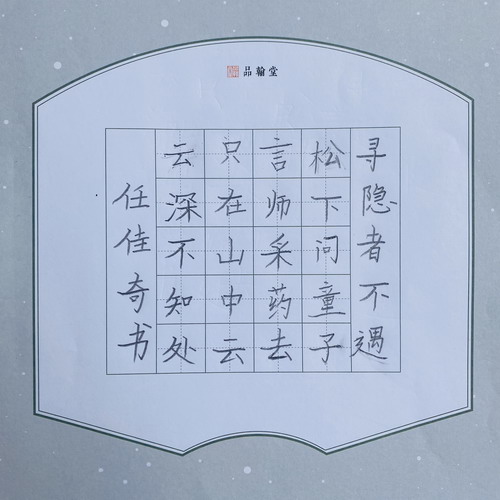 品翰堂
寻隐者不遇
松下问童子
言师采药去
只在山中云
云深不知处
任佳奇书